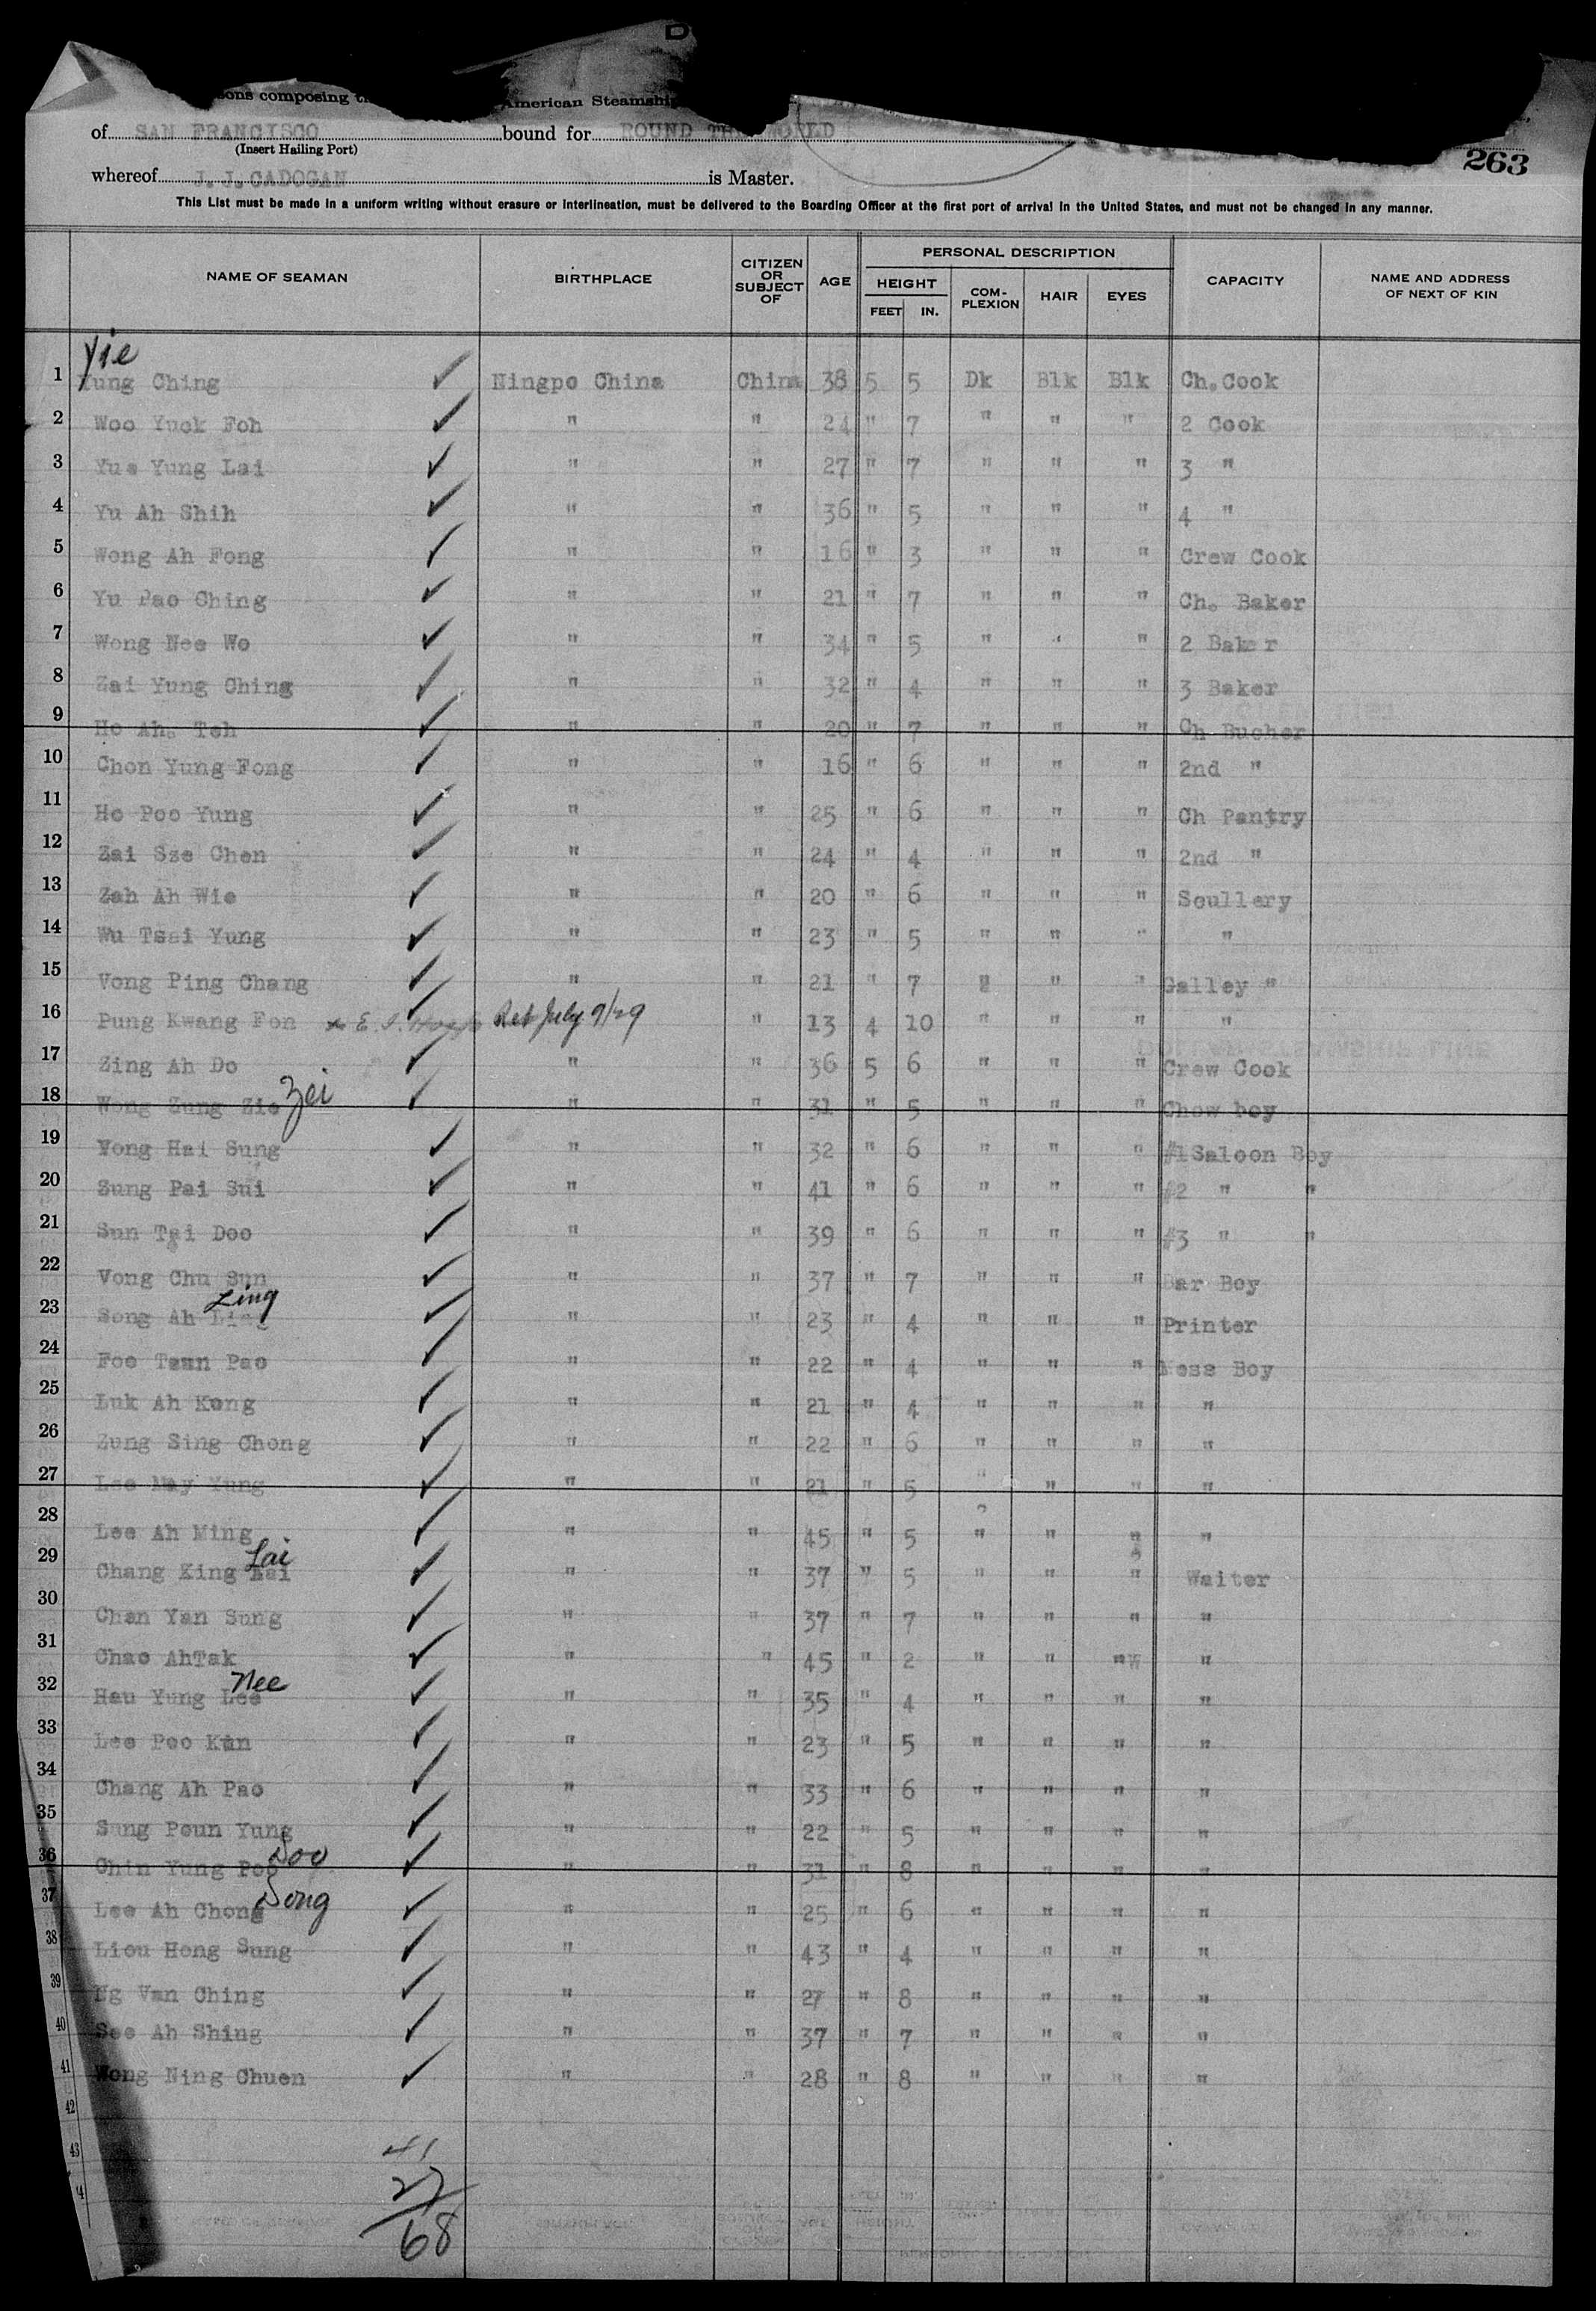 composing American Steamship
of SAN FRANCISCO bound for ROUND THE WORLD
(Insert Hailing Port)
263
whereof J. J. CADOGAN is Master.
This List must be made in a uniform writing without erasure or interlineation, must be delivered to the Boarding Officer at the first port of arrival in the United States, and must not be changed in any manner.
NAME OF SEAMAN BIRTHPLACE CITIZEN OR SUBJECT OF AGE PERSONAL DESCRIPTION CAPACITY NAME AND ADDRESS OF NEXT OF KIN
HEIGHT COM-PLEXION HAIR EYES
FEET IN.
Yie
1 Yung Ching ✓ Ningpo China China 38 5 5 Dk Blk Blk Ch. Cook
2 Woo Yuck Foh ✓ " " 24 " 7 " " " 2 Cook
3 Yue Yung Lai ✓ " " 27 " 7 " " " 3 "
4 Yu Ah Shih ✓ " " 36 " 5 " " " 4 "
5 Wong Ah Fong ✓ " " 16 " 3 " " " Crew Cook
6 Yu Pao Ching ✓ " " 21 " 7 " " " Ch. Baker
7 Wong Nee Wo ✓ " " 34 " 5 " " " 2 Baker
8 Zai Yung Ching ✓ " " 32 " 4 " " " 3 Baker
9 Ho Ah. Teh ✓ " " 20 " 7 " " " Ch Bucher
10 Chon Yung Fong ✓ " " 16 " 6 " " " 2nd "
11 Ho Poo Yung ✓ " " 25 " 6 " " " Ch Pantry
12 Zai Sze Chen ✓ " " 24 " 4 " " " 2nd "
13 Zah Ah Wie ✓ " " 20 " 6 " " " Scullery
14 Wu Tsai Yung ✓ " " 23 " 5 " " " "
15 Vong Ping Chang ✓ " " 21 " 7 " " " Galley "
16 Pung Kwang Fon ✓ July 9/29 " 13 4 10 " " " "
17 Zing Ah Do ✓ " " 36 5 6 " " " Crew Cook
18 Wong Zung Zie Zei ✓ " " 31 " 5 " " " Chow boy
19 Vong Hai Sung ✓ " " 32 " 6 " " " #1 Saloon Boy
20 Sung Pai Sui ✓ " " 41 " 6 " " " #2 " "
21 Sun Tai Doo ✓ " " 39 " 6 " " " #3 " "
22 Vong Chu Sun ✓ " " 37 " 7 " " " Bar Boy
Ling
23 Song Ah Ling ✓ " " 23 " 4 " " " Printer
24 Foo Tsun Pao ✓ " " 22 " 4 " " " Mess Boy
25 Luk Ah Kong ✓ " " 21 " 4 " " " "
26 Zung Sing Chong ✓ " " 22 " 6 " " " "
27 Lee May Yung ✓ " " 21 " 5 " " " "
28 Lee Ah Ming ✓ " " 45 " 5 " " " "
Lai
29 Chang King Lai ✓ " " 37 " 5 " " " Waiter
30 Chan Yan Sung ✓ " " 37 " 7 " " " "
31 Chao AhTak ✓ " " 45 " 2 " " " "
Nee
32 Hau Yung Lee ✓ " " 35 " 4 " " " "
33 Lee Poo Kun ✓ " " 23 " 5 " " " "
34 Chang Ah Pao ✓ " " 33 " 6 " " " "
35 Sung Poun Yung ✓ " " 22 " 5 " " " "
Doo
36 Chin Yung Poo ✓ " " 31 " 8 " " " "
Dong
37 Lee Ah Chong ✓ " " 25 " 6 " " " "
38 Liou Hong Sung ✓ " " 43 " 4 " " " "
39 Ng Van Ching ✓ " " 27 " 8 " " " "
40 See Ah Shing ✓ " " 37 " 7 " " " "
41 Wong Ning Chuen ✓ " " 28 " 8 " " " "
42
43
41
27
68